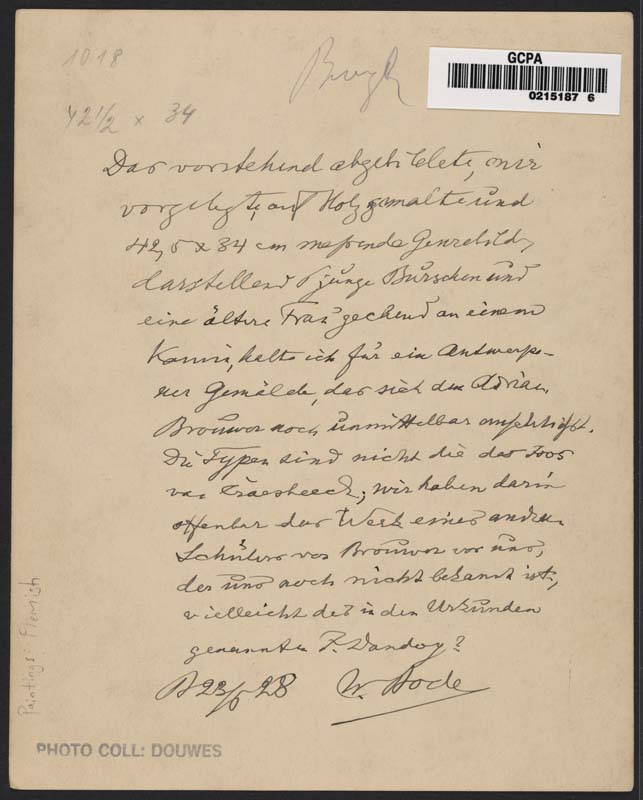 1018
42 1/2 x 34
GCPA
0215187 6
Das vorstehend abgebildete, mir
vorgelegte, auf Holz gemalte und
42,5 x 34 cm messende Genrebild,
darstellend junge Burschen und
eine ältere Frau zechend an einem
Kamin, halte ich für ein Antwerpe-
ner Gemälde, das sich dem Adrian
Brouwer noch unmittelbar anschließt.
Die Typen sind nicht die des Joos
van Craesbeeck; wir haben darin
offenbar das Werk eines andern
Schülers von Brouwer vor uns,
der uns noch nicht bekannt ist,
vielleicht des in den Urkunden
genannten Dandoy?
B 23/ 28 W. Bode
Paintings: Flemish
PHOTO COLL: DOUWES